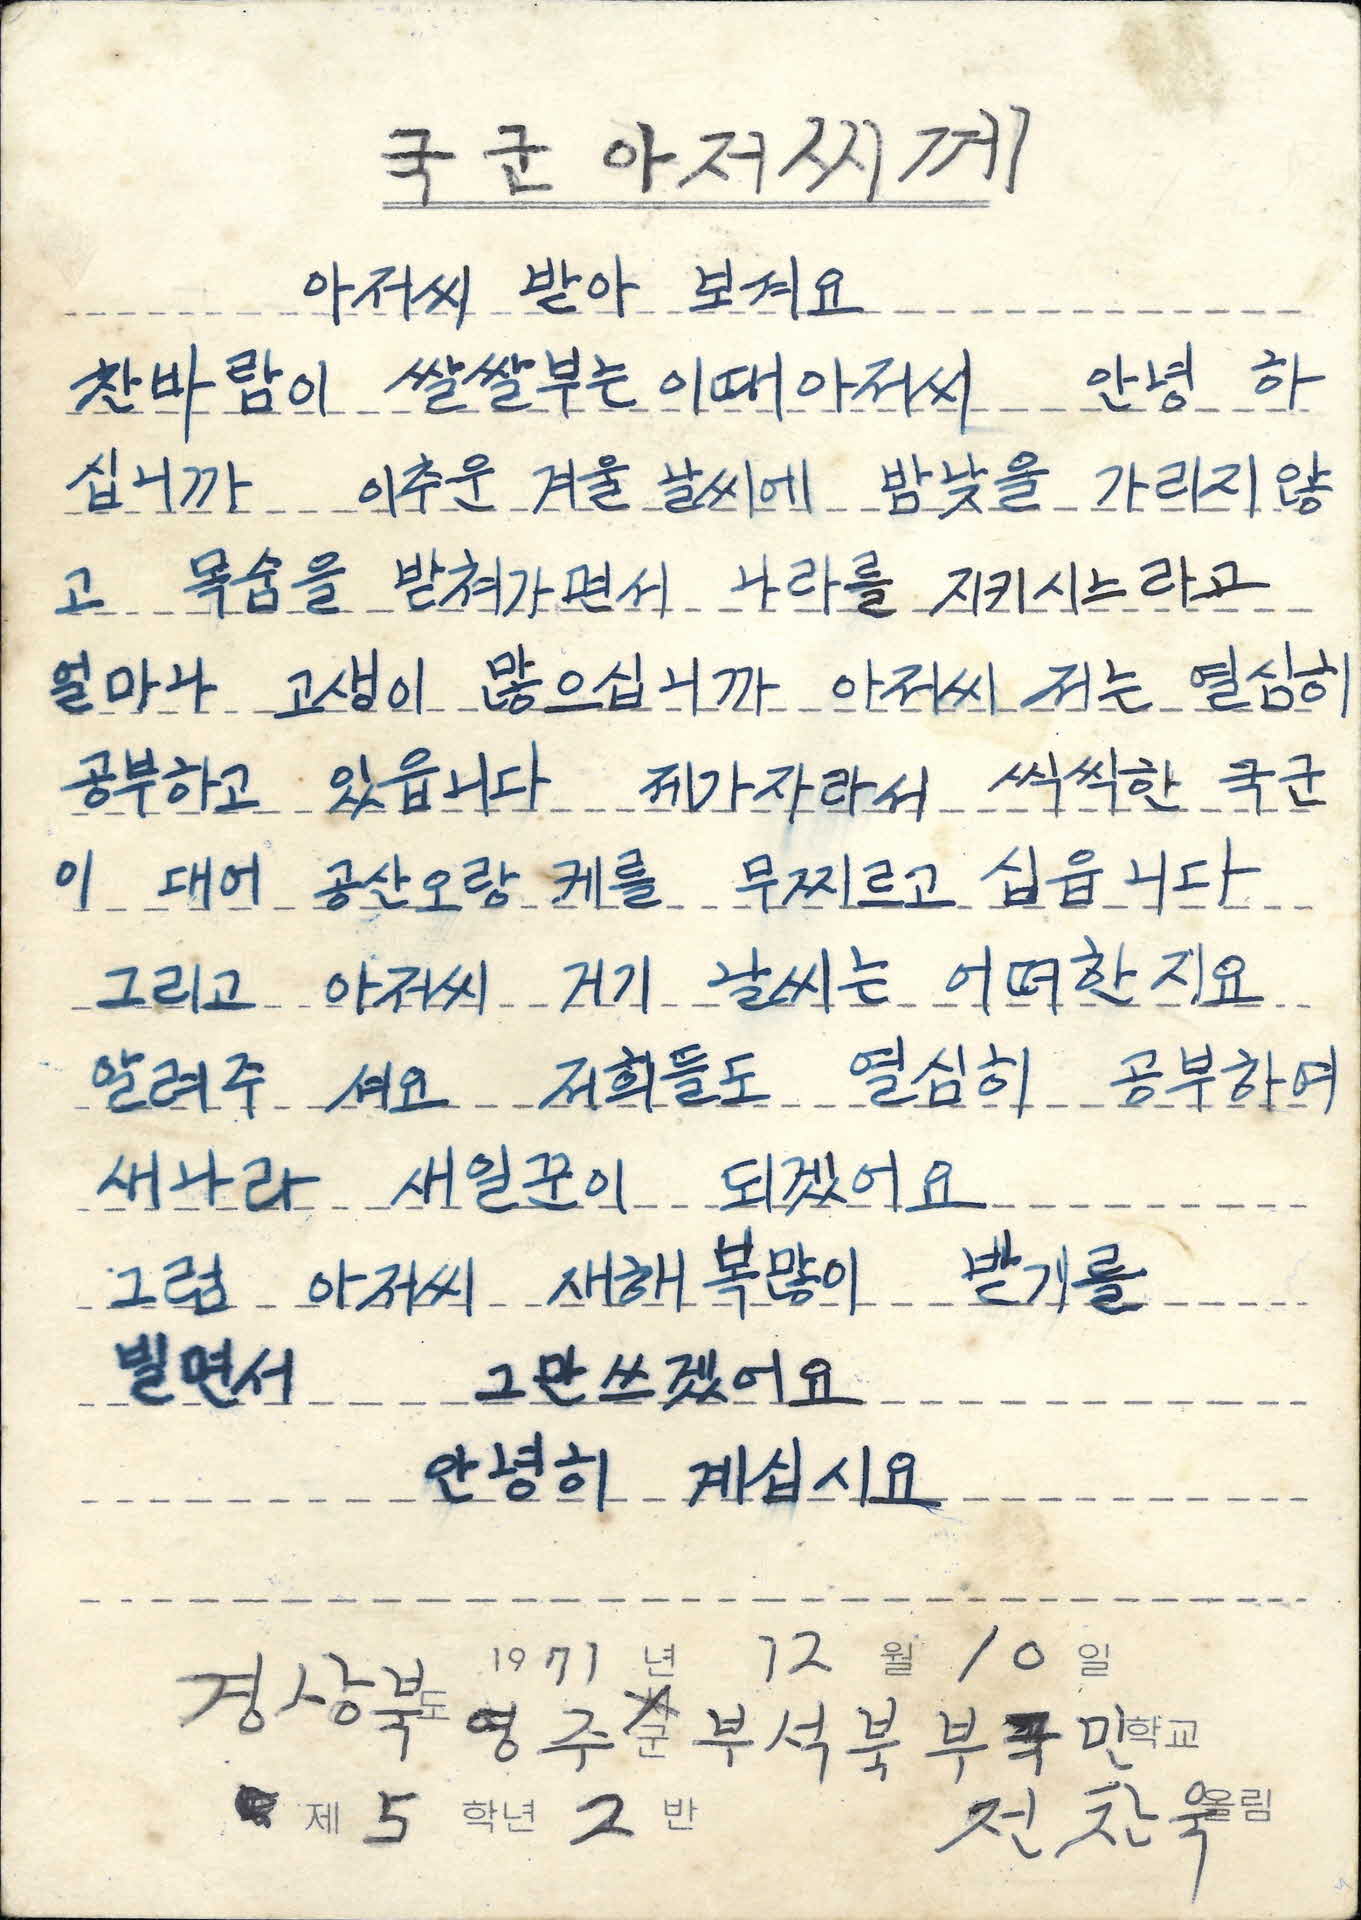 국군 아저씨께
아저씨 받아 보셔요
찬바람이 쌀쌀부는 이때 아저씨 안녕 하
십니까 이추운 겨울 날씨에 밤낮을 가리지 않
고 목숨을 받쳐가면서 나라를 지키시느라고
얼마나 고생이 많으십니까 아저씨 저는 열심히
공부하고 있읍니다 제가 자라서 씩씩한 국군
이 대어 공산오랑 케를 무찌르고 십읍니다
그리고 아저씨 거기 날씨는 어떠한지요
알려주 셔요 저희들도 열심히 공부하여
새나라 새일꾼이 되겠어요
그럼 아저씨 새해 복많이 받기를
빌면서 그만쓰겠어요
안녕히 계십시요
1971년 12월 10일
경상북도 영주군 부석북부국민학교
제 5 학년 2 반 전찬욱 올림